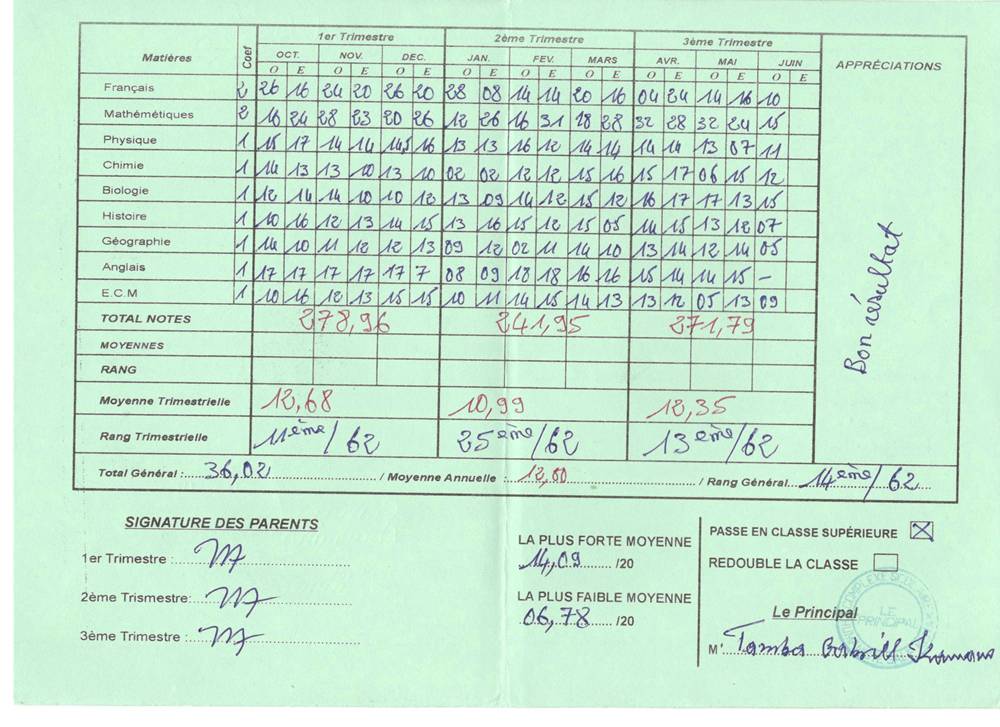 Matières Coef 1er Trimestre 2ème Trimestre 3ème Trimestre APPRÉCIATIONS
OCT. NOV. DEC. JAN. FEV. MARS AVR. MAI JUIN
O E O E O E O E O E O E O E O E O E
Français 2 26 16 24 20 26 20 28 08 14 14 20 16 04 24 14 16 10
Mathémétiques 2 18 24 28 23 20 26 12 26 16 31 28 28 32 28 32 24 15
Physique 1 15 17 14 14 14,5 16 13 13 16 12 14 14 14 14 13 07 11
Chimie 1 14 13 13 10 13 10 02 02 12 12 15 16 15 17 06 15 12
Biologie 1 12 14 14 10 10 12 13 09 14 12 15 12 16 17 17 13 15
Histoire 1 10 16 12 13 14 15 13 16 15 12 15 05 14 15 13 12 07
Géographie 1 14 10 11 12 12 13 09 12 02 11 14 10 13 14 12 14 05
Anglais 1 17 17 17 17 17 7 08 09 18 18 16 16 15 14 14 15 –
E.C.M 1 10 16 12 13 15 15 10 11 14 15 14 13 13 12 05 13 09
Bon résultat
TOTAL NOTES 278,96 241,95 271,79
MOYENNES
RANG
Moyenne Trimestrielle 12,68 10,99 12,35
Rang Trimestrielle 11ème/62 25ème/62 13ème/62
Total Général : 36,02 / Moyenne Annuelle : 12,00 / Rang Général 14ème/62
SIGNATURE DES PARENTS
1er Trimestre :
2ème Trismestre:
3ème Trimestre :
LA PLUS FORTE MOYENNE
14,09 /20
LA PLUS FAIBLE MOYENNE
06,78 /20
PASSE EN CLASSE SUPÉRIEURE
REDOUBLE LA CLASSE
Le Principal
LE PRINCIPAL
Mr Tamba